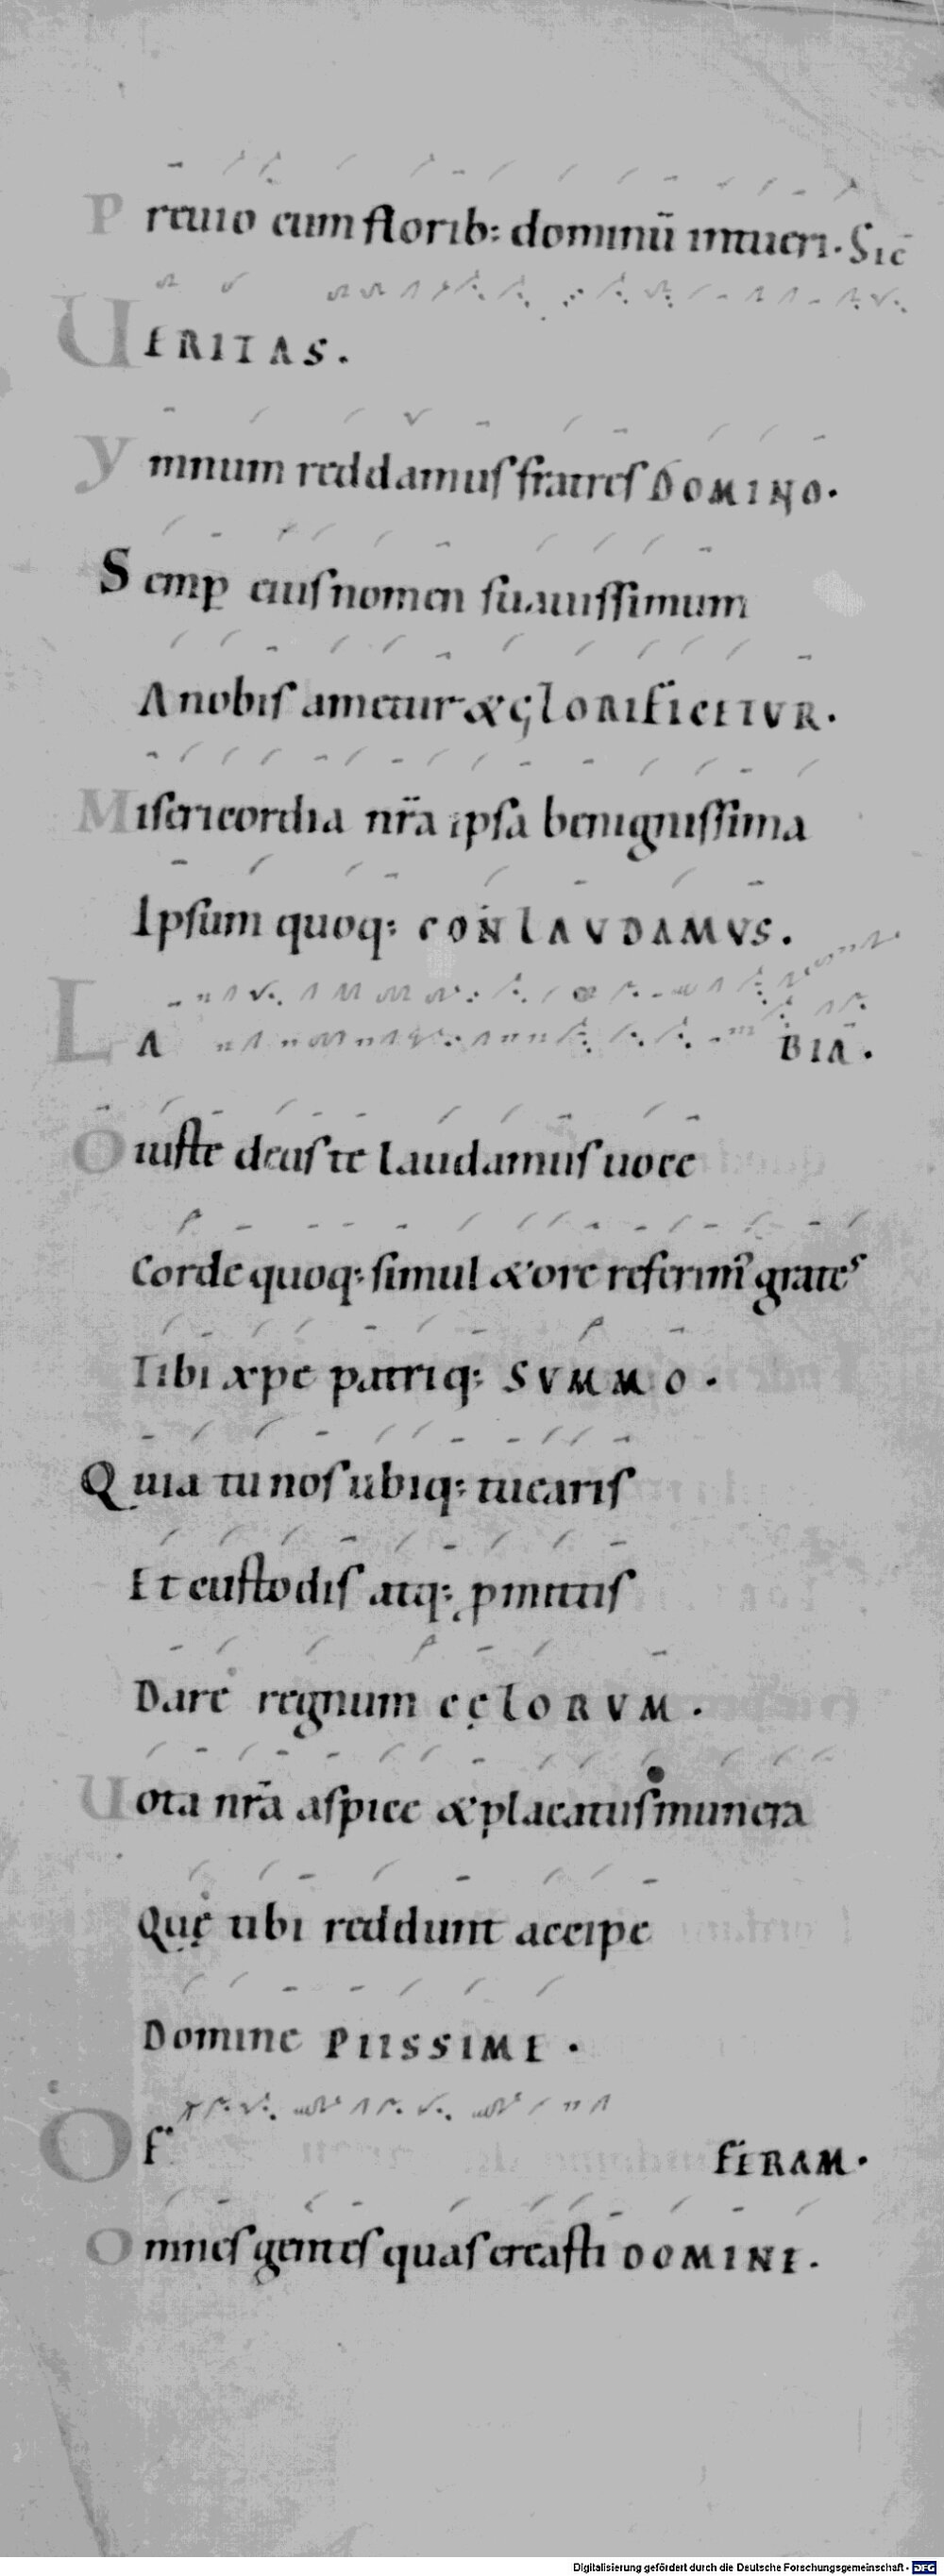 Pretuio cum florib: dominū intueri. Sic̄
UERITAS.
Ymnum reddamus fratres DOMINO.
Semp eius nomen suauissimum
A nobis ametur & GLORIFICETUR.
Misericordia nr̄a ipsa benignissima
Ipsum quoq: CONLAUDAMUS.
LA BIA.
O iuste deus te laudamus uoce
Corde quoq: simul & ore referim' grates
Tibi xpe patriq: SUMMO.
Quia tu nos ubiq: tuearis
Et custodis atq: pmittis
Dare regnum CĘLORUM.
Uota nr̄a aspice & placatus munera
Quę tibi reddunt accipe
Domine PIISSIME.
OF FERAM.
Omnes gentes quas creasti DOMINE.
Digitalisierung gefördert durch die Deutsche Forschungsgemeinschaft - DFG